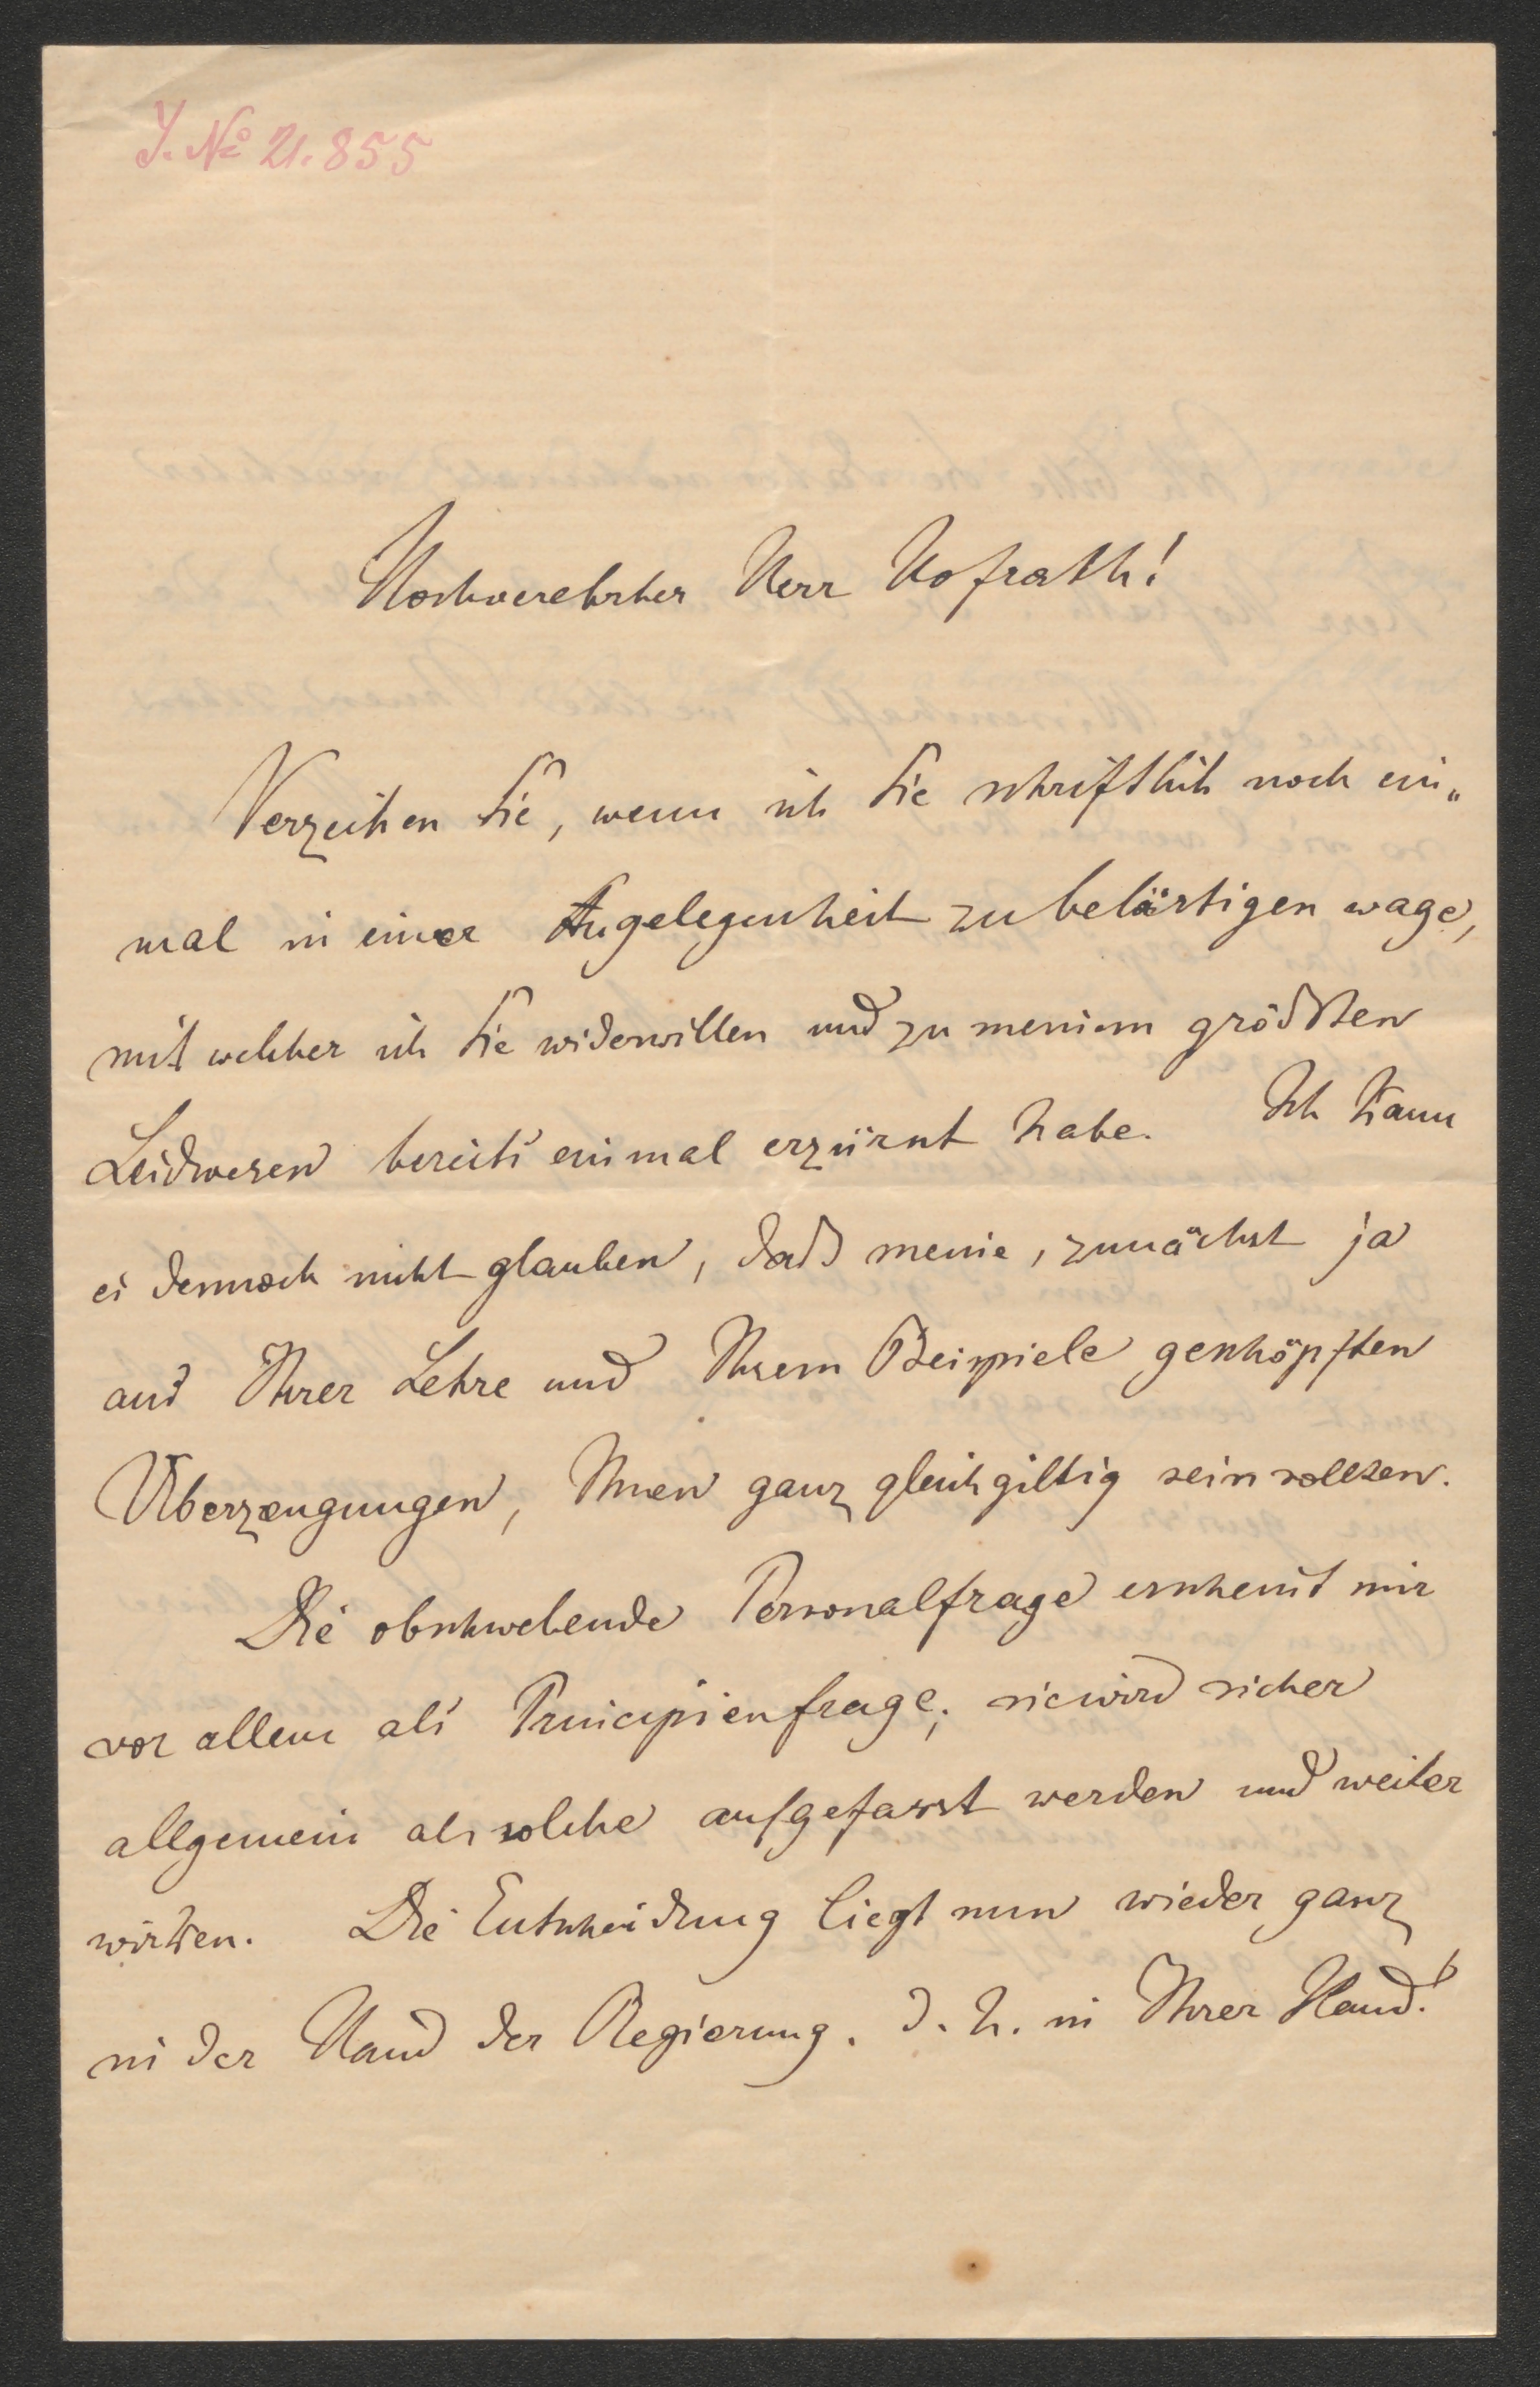 J. № 21.855
Hochverehrter Herr Hofrath!
Verzeihen Sie, wenn ich Sie schriftlich noch ein„
mal in einer Angelegenheit zu belästigen wage,
mit welcher ich Sie widerwillen und zu meinem größten
Leidwesen bereits einmal erzürnt habe. Ich kann
es dennoch nicht glauben, daß meine, zunächst ja
aus Ihrer Lehre und Ihrem Beispiele geschöpften
Überzeugungen, Ihnen ganz gleichgiltig sein sollten.
Die obschwebende Personalfrage erscheint mir
vor allem als Principienfrage; sie wird sicher
allgemein als solche aufgefasst werden und weiter
wirken. Die Entscheidung liegt nun wieder ganz
in der Hand der Regierung. d. h. in Ihrer Hand!